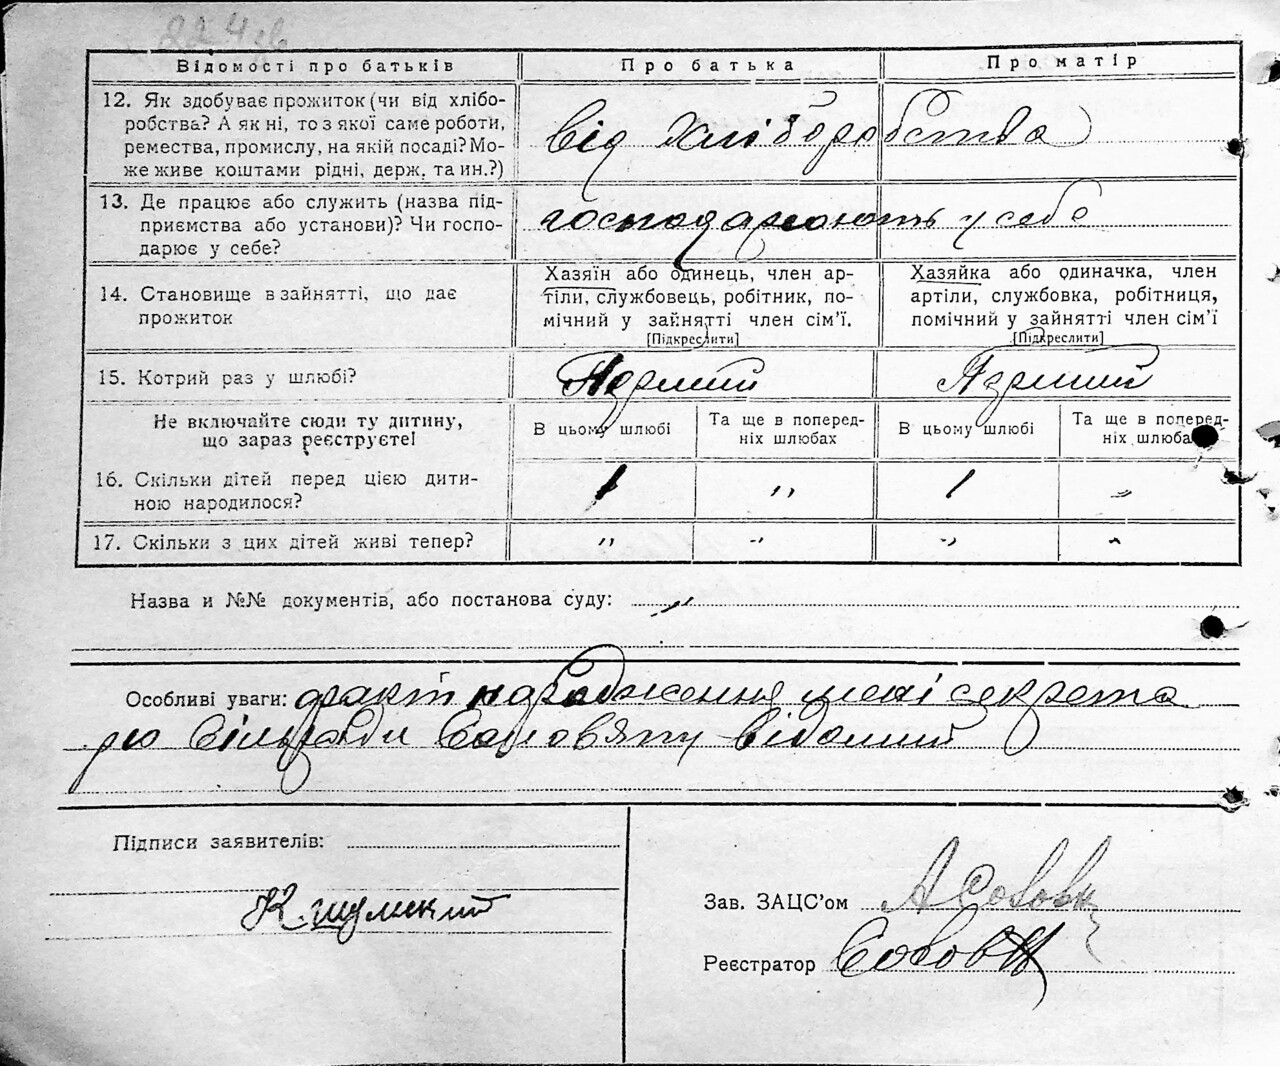 Відомості про батьків
Про батька
Про матір
12. Як здобуває прожиток (чи від хлібо-
робства? А як ні, то з якої саме роботи,
ремества, промислу, на якій посаді? Мо-
же живе коштами рідні, держ. та ин.?)
від хліборобства
13. Де працює або служить (назва під-
приємства або установи)? Чи госпо-
дарює у себе?
господарюють у себе
14. Становище в зайнятті, що дає
прожиток
Хазяїн або одинець, член ар-
тіли, службовець, робітник, по-
мічний у зайнятті член сім’ї.
[Підкреслити]
Хазяйка або одиначка, член
артіли, службовка, робітниця,
помічний у зайнятті член сім’ї
[Підкреслити]
15. Котрий раз у шлюбі?
Не включайте сюди ту дитину,
що зараз реєструєте!
В цьому шлюбі
Та ще в поперед-
ніх шлюбах
В цьому шлюбі
Та ще в поперед-
ніх шлюбах
16. Скільки дітей перед цією дити-
ною народилося?
1 " 1 "
17. Скільки з цих дітей живі тепер?
" " " "
Назва и №№ документів, або постанова суду:
Особливі уваги: факт народження мені секрета
рю Сільради відомий
Підписи заявителів:
К. Шумский
Зав. ЗАЦС’ом
Реєстратор